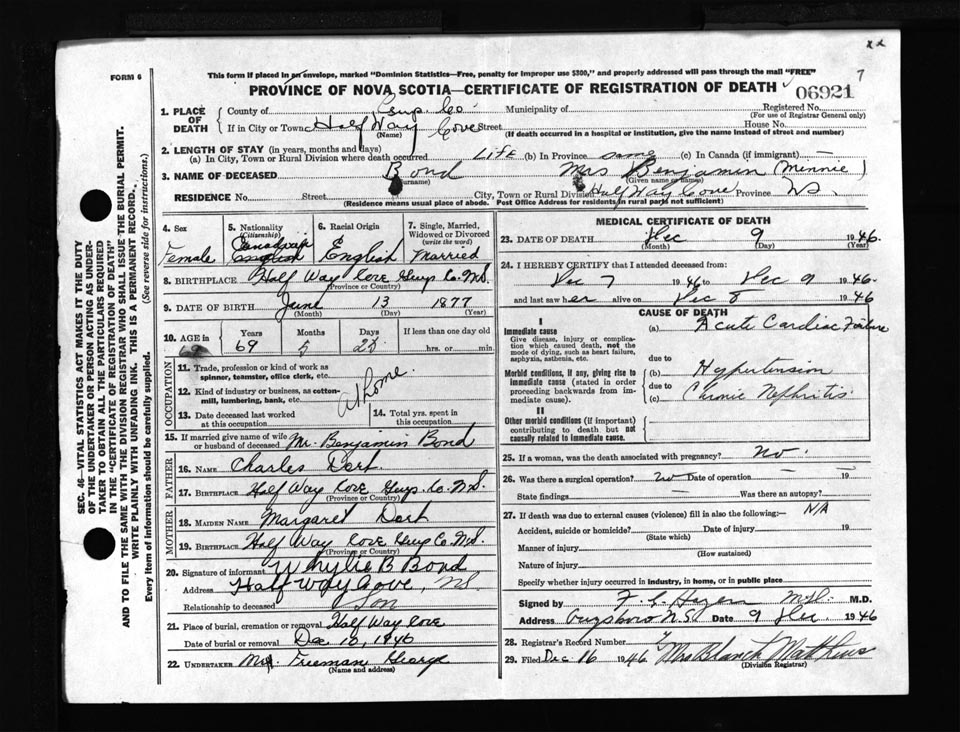 x2
7
FORM 6
This form if placed in an envelope, marked "Dominion Statistics—Free, penalty for improper use $300," and properly addressed will pass through the mail "FREE"
PROVINCE OF NOVA SCOTIA—CERTIFICATE OF REGISTRATION OF DEATH
06921
1. PLACE OF DEATH
County of Guys. Co. Municipality of Registered No.
(For use of Registrar General only)
If in City or Town Half Way Cove Street House No.
(Name) (If death occurred in a hospital or institution, give the name instead of street and number)
2. LENGTH OF STAY (in years, months and days)
(a) In City, Town or Rural Division where death occurred Life (b) In Province same (c) In Canada (if immigrant) —
3. NAME OF DECEASED Bond Mrs Benjamin (Minnie)
(Surname) (Given name or names)
RESIDENCE No. Street City, Town or Rural Division Half Way Cove Province N.S.
(Residence means usual place of abode. Post Office Address for residents in rural parts not sufficient)
4. Sex Female
5. Nationality (Citizenship) Canadian English
6. Racial Origin English
7. Single, Married, Widowed or Divorced (write the word) Married
8. BIRTHPLACE Half Way Cove Guys Co. N.S.
(Province or Country)
9. DATE OF BIRTH June 13 1877
(Month) (Day) (Year)
10. AGE in Years Months Days If less than one day
69 5 hrs. or min.
OCCUPATION
11. Trade, profession or kind of work as spinner, teamster, office clerk, etc.
12. Kind of industry or business, as cotton-mill, lumbering, bank, etc.
at home.
13. Date deceased last worked at this occupation
14. Total yrs. spent in this occupation
15. If married give name of wife or husband of deceased Mr. Benjamin Bond
FATHER
16. NAME Charles Dort.
17. BIRTHPLACE Half Way Cove Guys. Co. N.S.
(Province or Country)
MOTHER
18. MAIDEN NAME Margaret Dort
19. BIRTHPLACE Half Way Cove Guys Co. N.S.
(Province or Country)
20. Signature of informant B Bond
Address Half Way Cove, N.S.
Relationship to deceased Son
21. Place of burial, cremation or removal Half Way Cove
Date of burial or removal Dec 10, 1946
22. UNDERTAKER Freeman George
(Name and address)
MEDICAL CERTIFICATE OF DEATH
23. DATE OF DEATH Dec 9 1946.
(Month) (Day) (Year)
24. I HEREBY CERTIFY that I attended deceased from:
Dec 7 1946 to Dec 9 1946.
and last saw her alive on Dec 8 1946
CAUSE OF DEATH
I
Immediate cause
Give disease, injury, or complication which caused death, not the mode of dying, such as heart failure, asphyxia, asthenia, etc.
(a) Acute Cardiac Failure
due to
Morbid conditions, if any, giving rise to immediate cause (stated in order proceeding backwards from immediate cause).
(b) Hypertension
due to
(c) Chronic Nephritis
II
Other morbid conditions (if important) contributing to death but not causally related to immediate cause.
25. If a woman, was the death associated with pregnancy? No.
26. Was there a surgical operation? no Date of operation — 19
State findings — Was there an autopsy? —
27. If death was due to external causes (violence) fill in also the following:— N/A
Accident, suicide or homicide? Date of injury 19
(State which)
Manner of injury
(How sustained)
Nature of injury
Specify whether injury occurred in industry, in home, or in public place
Signed by M.D. M.D.
Address N.S. Date 9 Dec 1946
28. Registrar's Record Number 7
29. Filed Dec 16 1946 Mrs Blanch Matthews
(Division Registrar)
SEC. 46—VITAL STATISTICS ACT MAKES IT THE DUTY
OF THE UNDERTAKER OR PERSON ACTING AS UNDER-
TAKER TO OBTAIN ALL THE PARTICULARS REQUIRED
IN THE "CERTIFICATE OF REGISTRATION OF DEATH"
AND TO FILE THE SAME WITH THE DIVISION REGISTRAR WHO SHALL ISSUE THE BURIAL PERMIT.
WRITE PLAINLY WITH UNFADING INK. THIS IS A PERMANENT RECORD.
Every item of information should be carefully supplied. (See reverse side for instructions.)